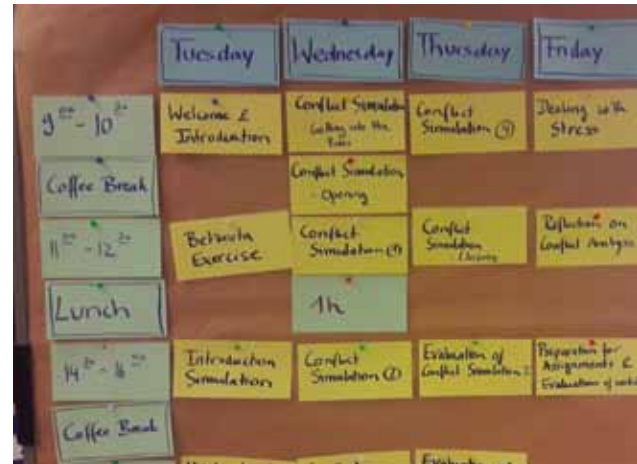 Tuesday
Wednesday
Thursday
Friday
9 - 10
Welcome &
Introduction
Conflict Simulation
Getting into the
Roles
Conflict
Simulation
Dealing with
Stress
Coffee Break
Conflict Simulation
- Opening
11 - 12
Exercise
Conflict
Simulation (1)
Conflict
Simulation
Closing
Reflection on
Conflict Analysis
Lunch
1h
14 - 16
Introduction
Simulation
Conflict
Simulation (2)
Evaluation of
Conflict Simulation
Preparation for
Assignments &
Evaluation of
Coffee Break